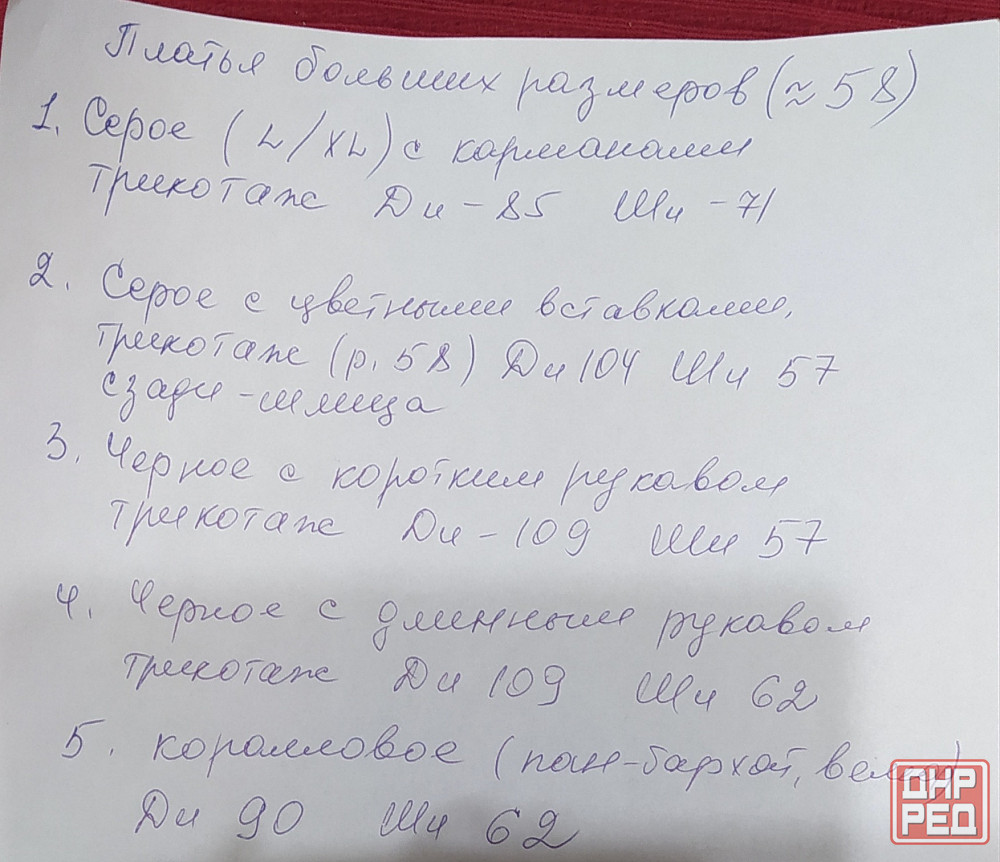 Платья больших размеров (≈58)
1. Серое (L/XL) с карманами
трикотаж Ди - 85 Ши - 71
2. Серое с цветными вставками,
трикотаж (р. 58) Ди 104 Ши 57
сзади - шлица
3. Черное с коротким рукавом
трикотаж Ди - 109 Ши 57
4. Черное с длинным рукавом
трикотаж Ди 109 Ши 62
5. коралловое (пан-бархат,
Ди 90 Ши 62
ДНР
РЕД